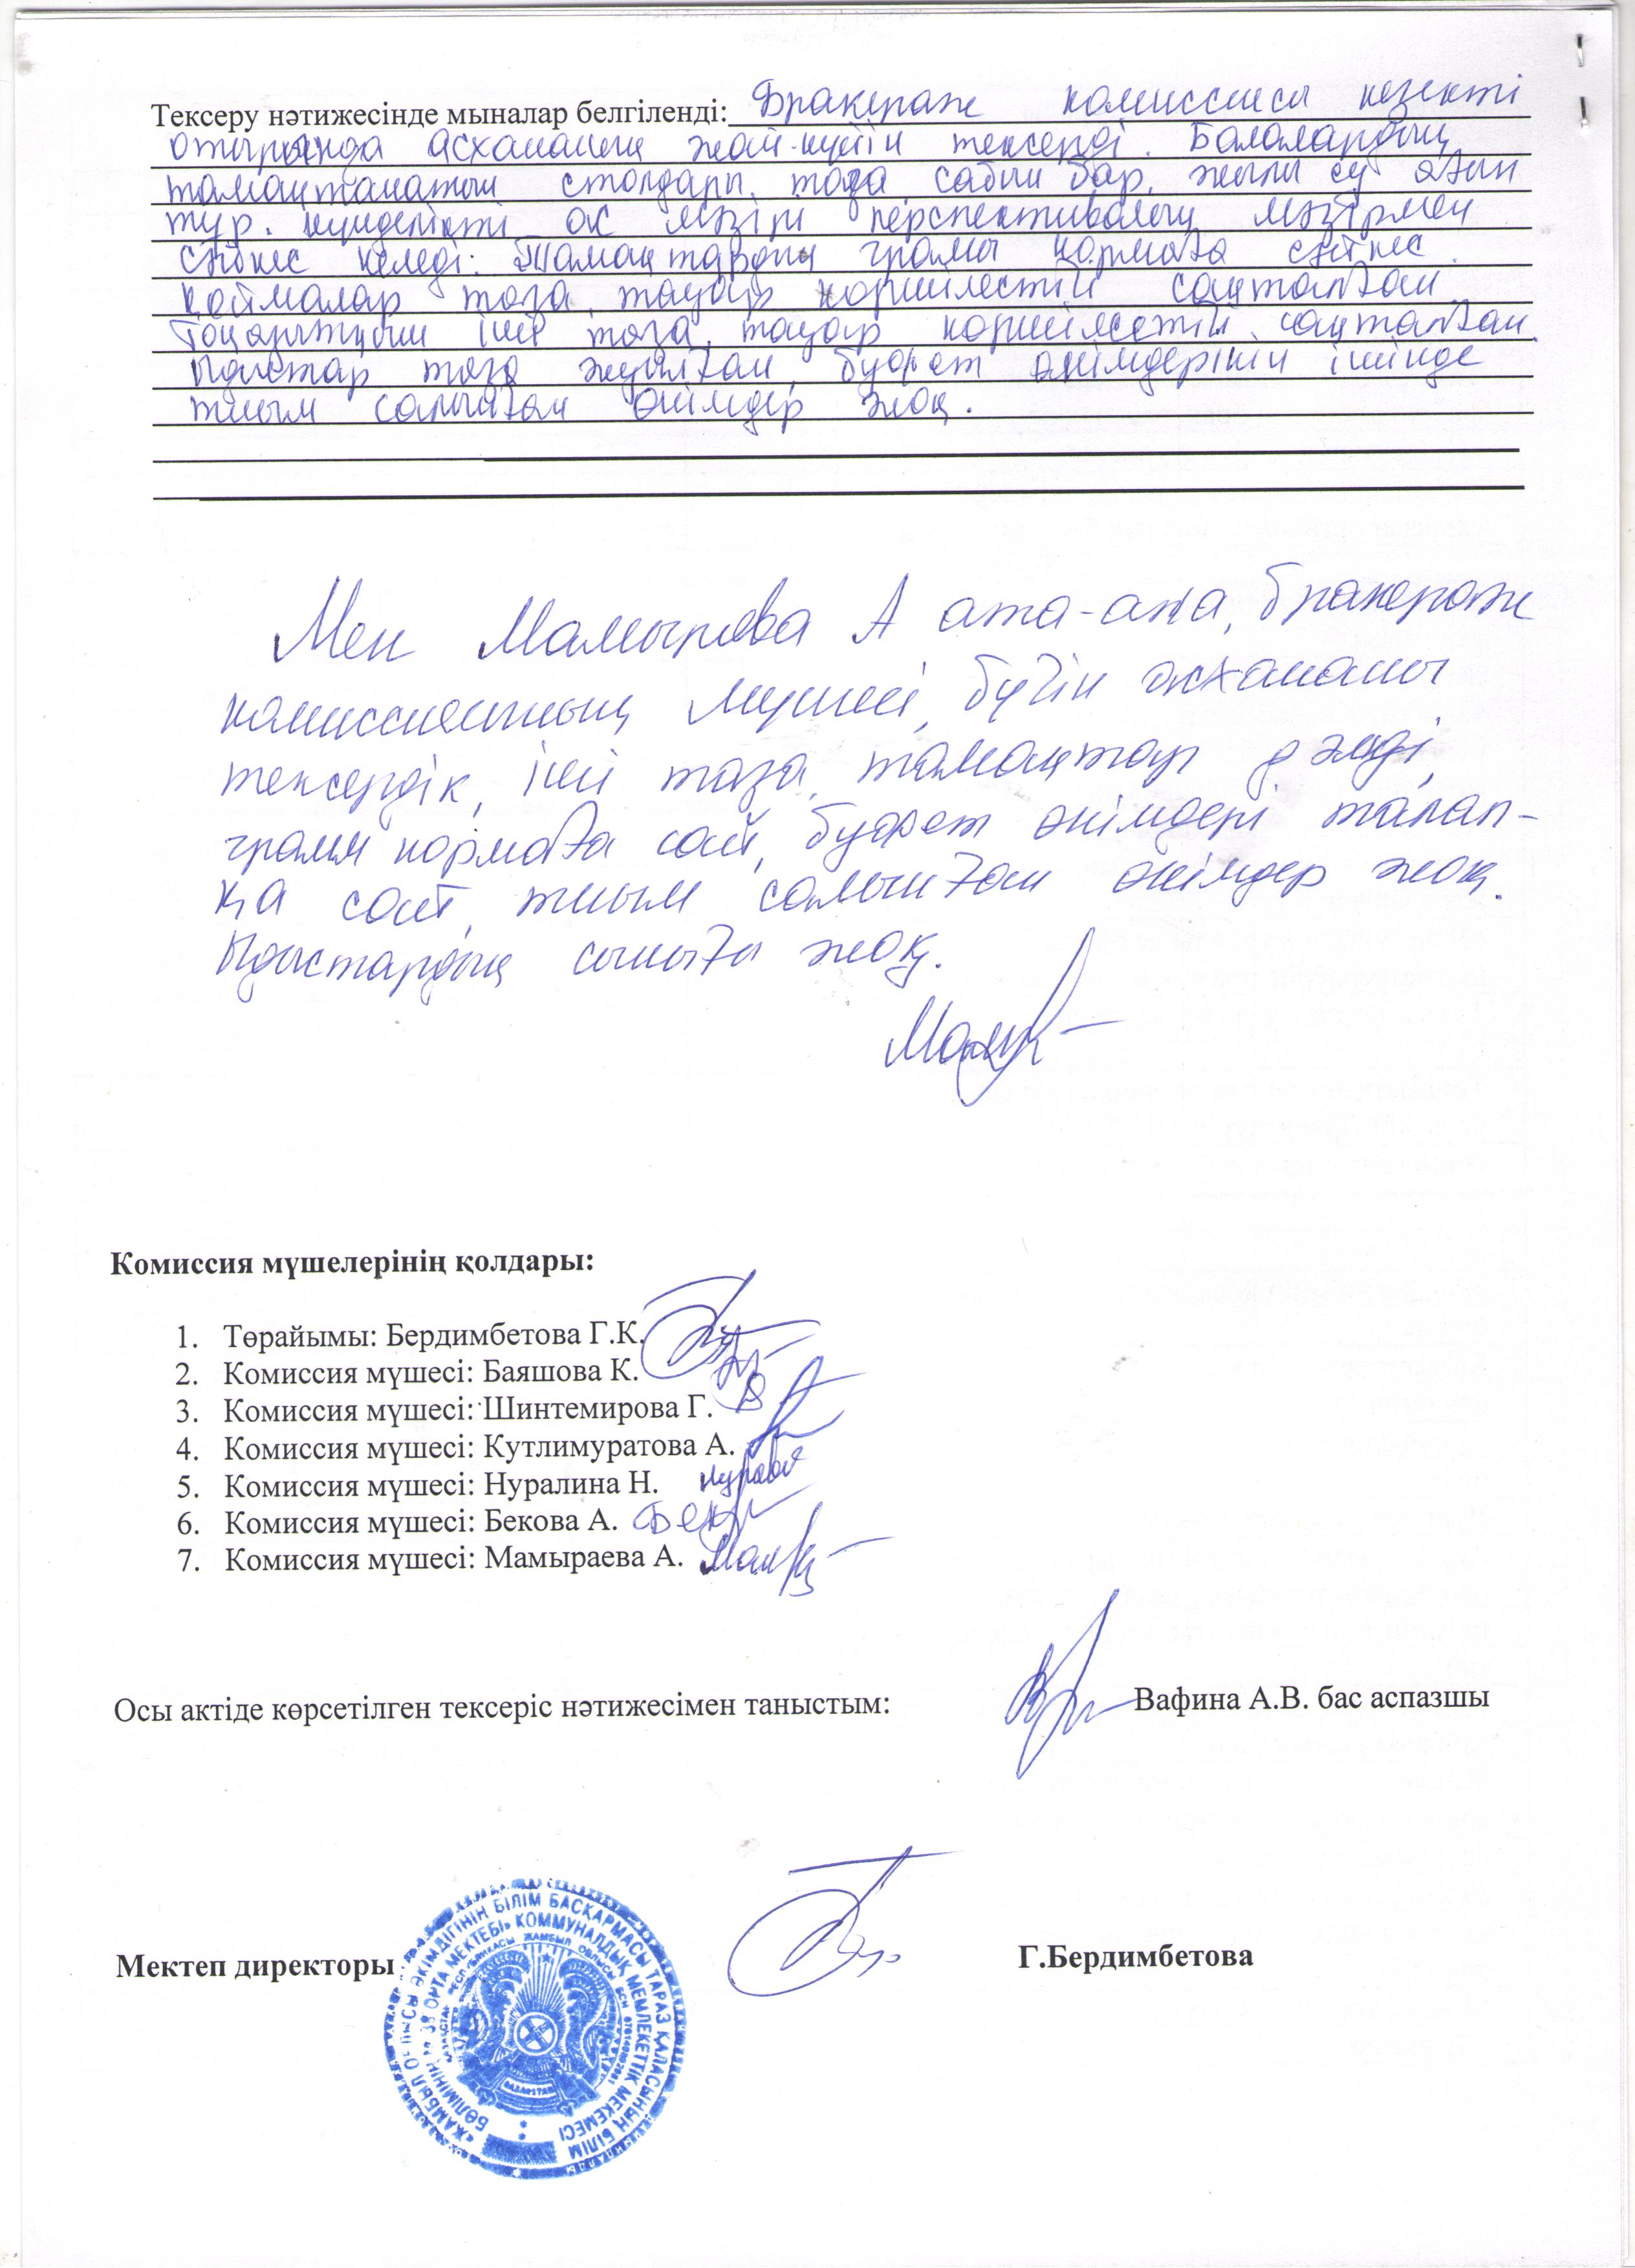 Тексеру нәтижесінде мыналар белгіленді: Бракераж комиссиясы кезекті
отырында асхананың жай-күйін тексерді. Балалардың
тамақтанатын столдары таза, сабын бар, жылы су ағып
тұр. күнделікті ас мәзірі перспективалық мәзірмен
сәйкес келеді. Тамақтардың грамы нормаға сәйкес.
Қоймалар таза, тауар көршілестігі сақталған.
Тоңазытқыш іші таза, тауар көршілестігі сақталған.
Ыдыстар таза жуылған, буфет өнімдерінің ішінде
тиым салынған өнімдер жоқ.
Мен Мамыраева А ата-ана, бракераж
комиссиясының мүшесі, бүгін асхананы
тексердік, іші таза, тамақтар дәмді,
грамм нормаға сай, буфет өнімдері талап-
қа сай, тиым салынған өнімдер жоқ.
Ыдыстардың сынығы жоқ.
Комиссия мүшелерінің қолдары:
1. Төрайымы: Бердимбетова Г.К.
2. Комиссия мүшесі: Баяшова К.
3. Комиссия мүшесі: Шинтемирова Г.
4. Комиссия мүшесі: Кутлимуратова А.
5. Комиссия мүшесі: Нуралина Н.
6. Комиссия мүшесі: Бекова А.
7. Комиссия мүшесі: Мамыраева А.
Осы актіде көрсетілген тексеріс нәтижесімен таныстым: Вафина А.В. бас аспазшы
Мектеп директоры Г.Бердимбетова
«ЖАМБЫЛ ОБЛЫСЫ ӘКІМДІГІНІҢ БІЛІМ БАСҚАРМАСЫ ТАРАЗ ҚАЛАСЫНЫҢ БІЛІМ
БӨЛІМІНІҢ № 39 ОРТА МЕКТЕБІ» КОММУНАЛДЫҚ МЕМЛЕКЕТТІК МЕКЕМЕСІ
ҚАЗАҚСТАН РЕСПУБЛИКАСЫ ЖАМБЫЛ ОБЛЫСЫ БСН